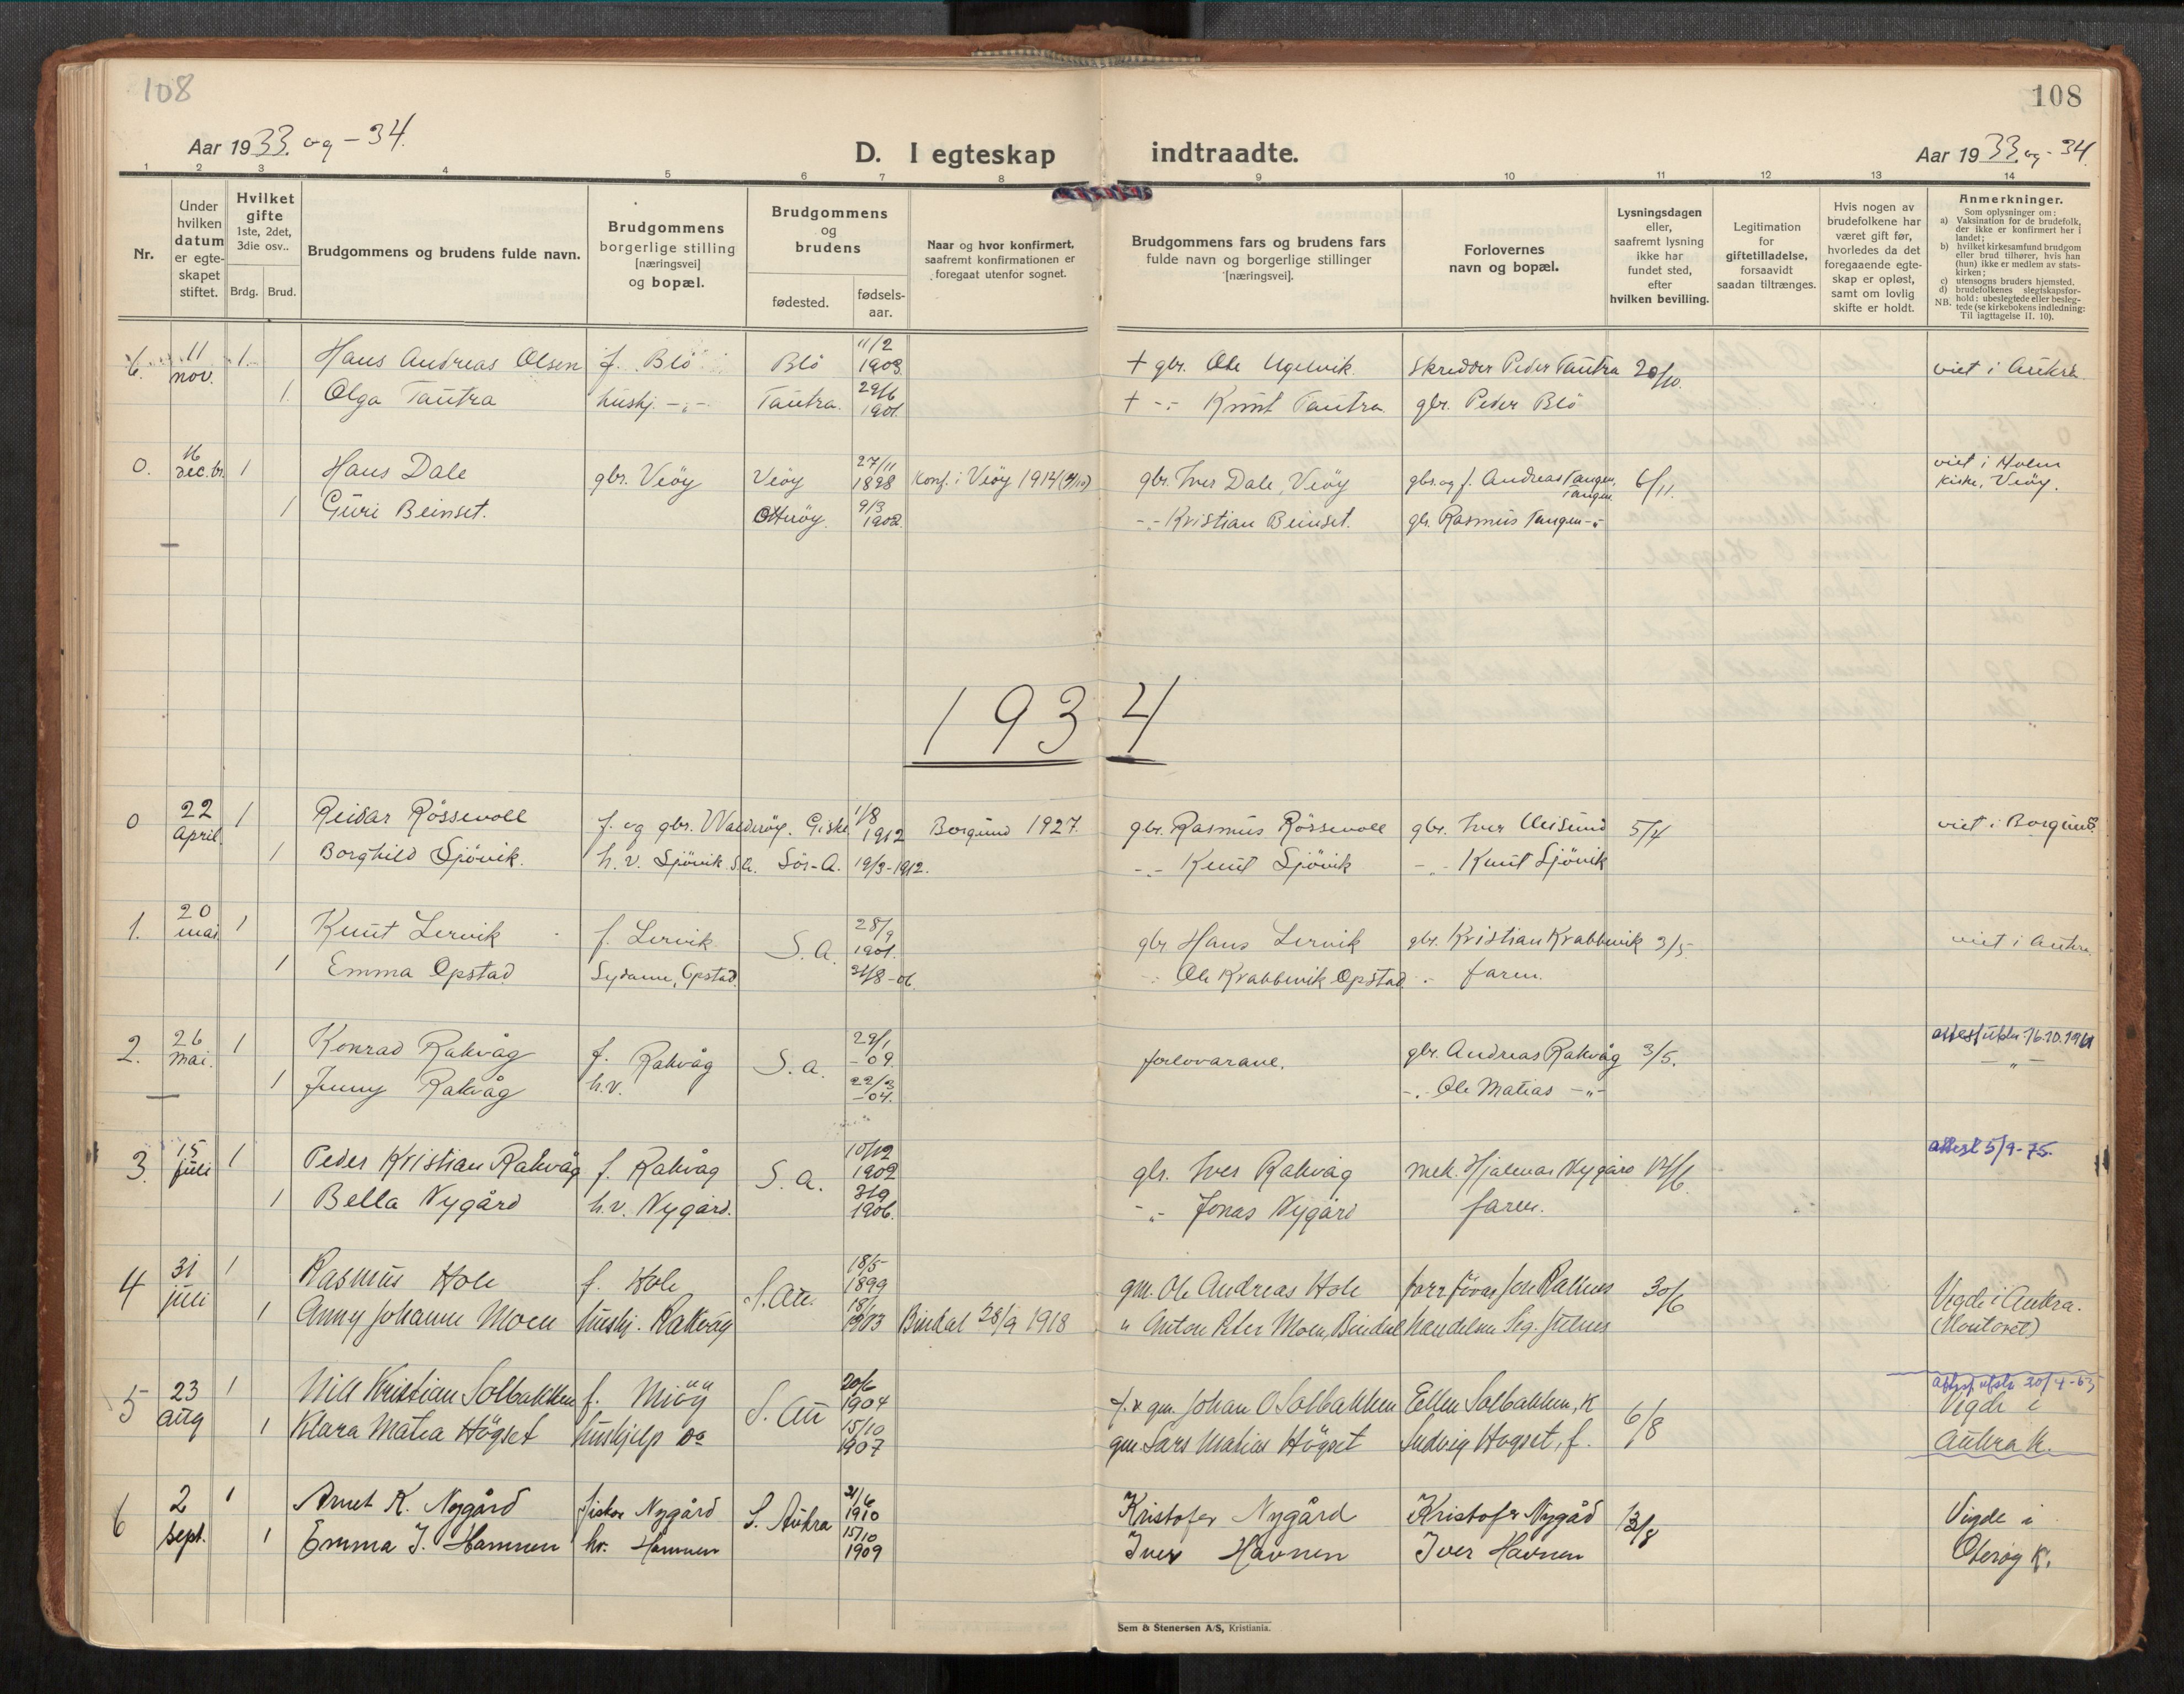 108
108
Aar 1933. og - 34.
D. I egteskap indtraadte.
Aar 1933. og - 34.
1 2 3 4 5 6 7 8 9 10 11 12 13 14
Nr.
Under hvilken datum er egteskapet stiftet.
Hvilket gifte 1ste, 2det, 3die osv..
Brdg. Brud.
Brudgommens og brudens fulde navn.
Brudgommens borgerlige stilling [næringsvei] og bopæl.
Brudgommens og brudens
fødested.
fødselsaar.
Naar og hvor konfirmert, saafremt konfirmationen er foregaat utenfor sognet.
Brudgommens fars og brudens fars fulde navn og borgerlige stillinger [næringsvei].
Forlovernes navn og bopæl.
Lysningsdagen eller, saafremt lysning ikke har fundet sted, efter hvilken bevilling.
Legitimation for giftetilladelse, forsaavidt saadan tiltrænges.
Hvis nogen av brudefolkene har været gift før, hvorledes da det foregaaende egteskap er opløst, samt om lovlig skifte er holdt.
Anmerkninger.
Som oplysninger om:
a) Vaksination for de brudefolk, der ikke er konfirmert her i landet;
b) hvilket kirkesamfund brudgom eller brud tilhører, hvis han (hun) ikke er medlem av statskirken;
c) utensogns bruders hjemsted.
d) brudefolkenes slegtskapsforhold: ubeslegtede eller beslegtede (se kirkebokens indledning: Til iagttagelse II. 10).
NB.
6. 11 nov. 1. Hans Andreas Olsen f. Blö Blö 11/2 1903. + gbr. Ole Ugelvik. Skredder Peder Tautra 20/10. viet i Aukra.
1. Olga Tautra hushj. -"- Tautra. 29/6 1901. + -"- Knut Tautra. gbr. Peder Blö
0. 16 dec.br. 1 Hans Dale gbr. Veöy Veöy 27/11 1898 Konf. i Veöy 1914 gbr. Iver Dale, Veöy gbr. og f. Andreas Tangen, Tangen 6/11. viet i Holm Kirke, Veöy.
1 Guri Beinset. Otteröy. 9/3 1902. -"- Kristian Beinset. gbr. Rasmus Tangen -"-
1934
0 22 April. 1 Reidar Rössevoll f. og gbr. Walderöy. Giske 1/8 1912 Borgund 1927. gbr. Rasmus Rössevoll gbr. Iver 5/4 viet i Borgund.
1 Borghild Sjövik. h. v. Sjövik S.A. Sör-A. 19/3-1912. -"- Knut Sjövik -"- Knut Sjövik
1. 20 mai 1 Knut Lervik f. Lervik S. A. 28/9 1901. gbr Hans Lervik gbr. Kristian Krabbevik 3/5 viet i Aukra
1 Emma Opstad Sydame, Opstad. 21/8-06. -"- Ole Krabbevik Opstad. -"- faren.
2. 26 Mai. 1 Konrad Rakvåg f. Rakvåg S. a. 29/1 -09. forlovarane. gbr. Andreas Rakvåg 3/5. attest utstn. 16.10.1961
1 Jenny Rakvåg h.v. 22/3 -04. -"- Ole Matias -"- -"-
3. 15 juli 1 Peder Kristian Rakvåg f. Rakvåg S. a. 10/12 1902 gbr. Iver Rakvåg mek. Hjalmar Nygård 12/6. attest 5/9-75.
1 Bella Nygård h.v. Nygård. 3/9 1906. -"- Jonas Nygård faren.
4 31 juli 1 Rasmus Hole f. Hole S. Au. 18/5 1899 gm. Ole Andreas Hole Jon Raknes 30/6 Vigde i Aukra.
1 Anny Johanne Moen hushj. Rakvåg 1903 Bindal 28/9 1918 " Anton Peter Moen, Bindal handelsm Sig. (Kontoret)
5 23 aug 1 Nils Kristian Solbakken f. Miöy S. Au 20/6 1904 f. & gm. Johan O Solbakken Ellen Solbakken, K 6/8 Attest utstn 20/4-63 Vigde i
1 Klara Matea Högset hushjelp Do 15/10 1907 gm Lars Matias Högset Ludvig Hogset, f. Aukra K.
6 2 sept. 1 Arnet K. Nygård fisker Nygård S. Aukra 21/6 1910 Kristofer Nygård Kristofer Nygåd 13/8 Vigde i
1 Emma I. Hamnen hv. Hamnen 15/10 1909 Iver Havnen Iver Havnen Oterøy K.
Sem & Stenersen A/S, Kristiania.